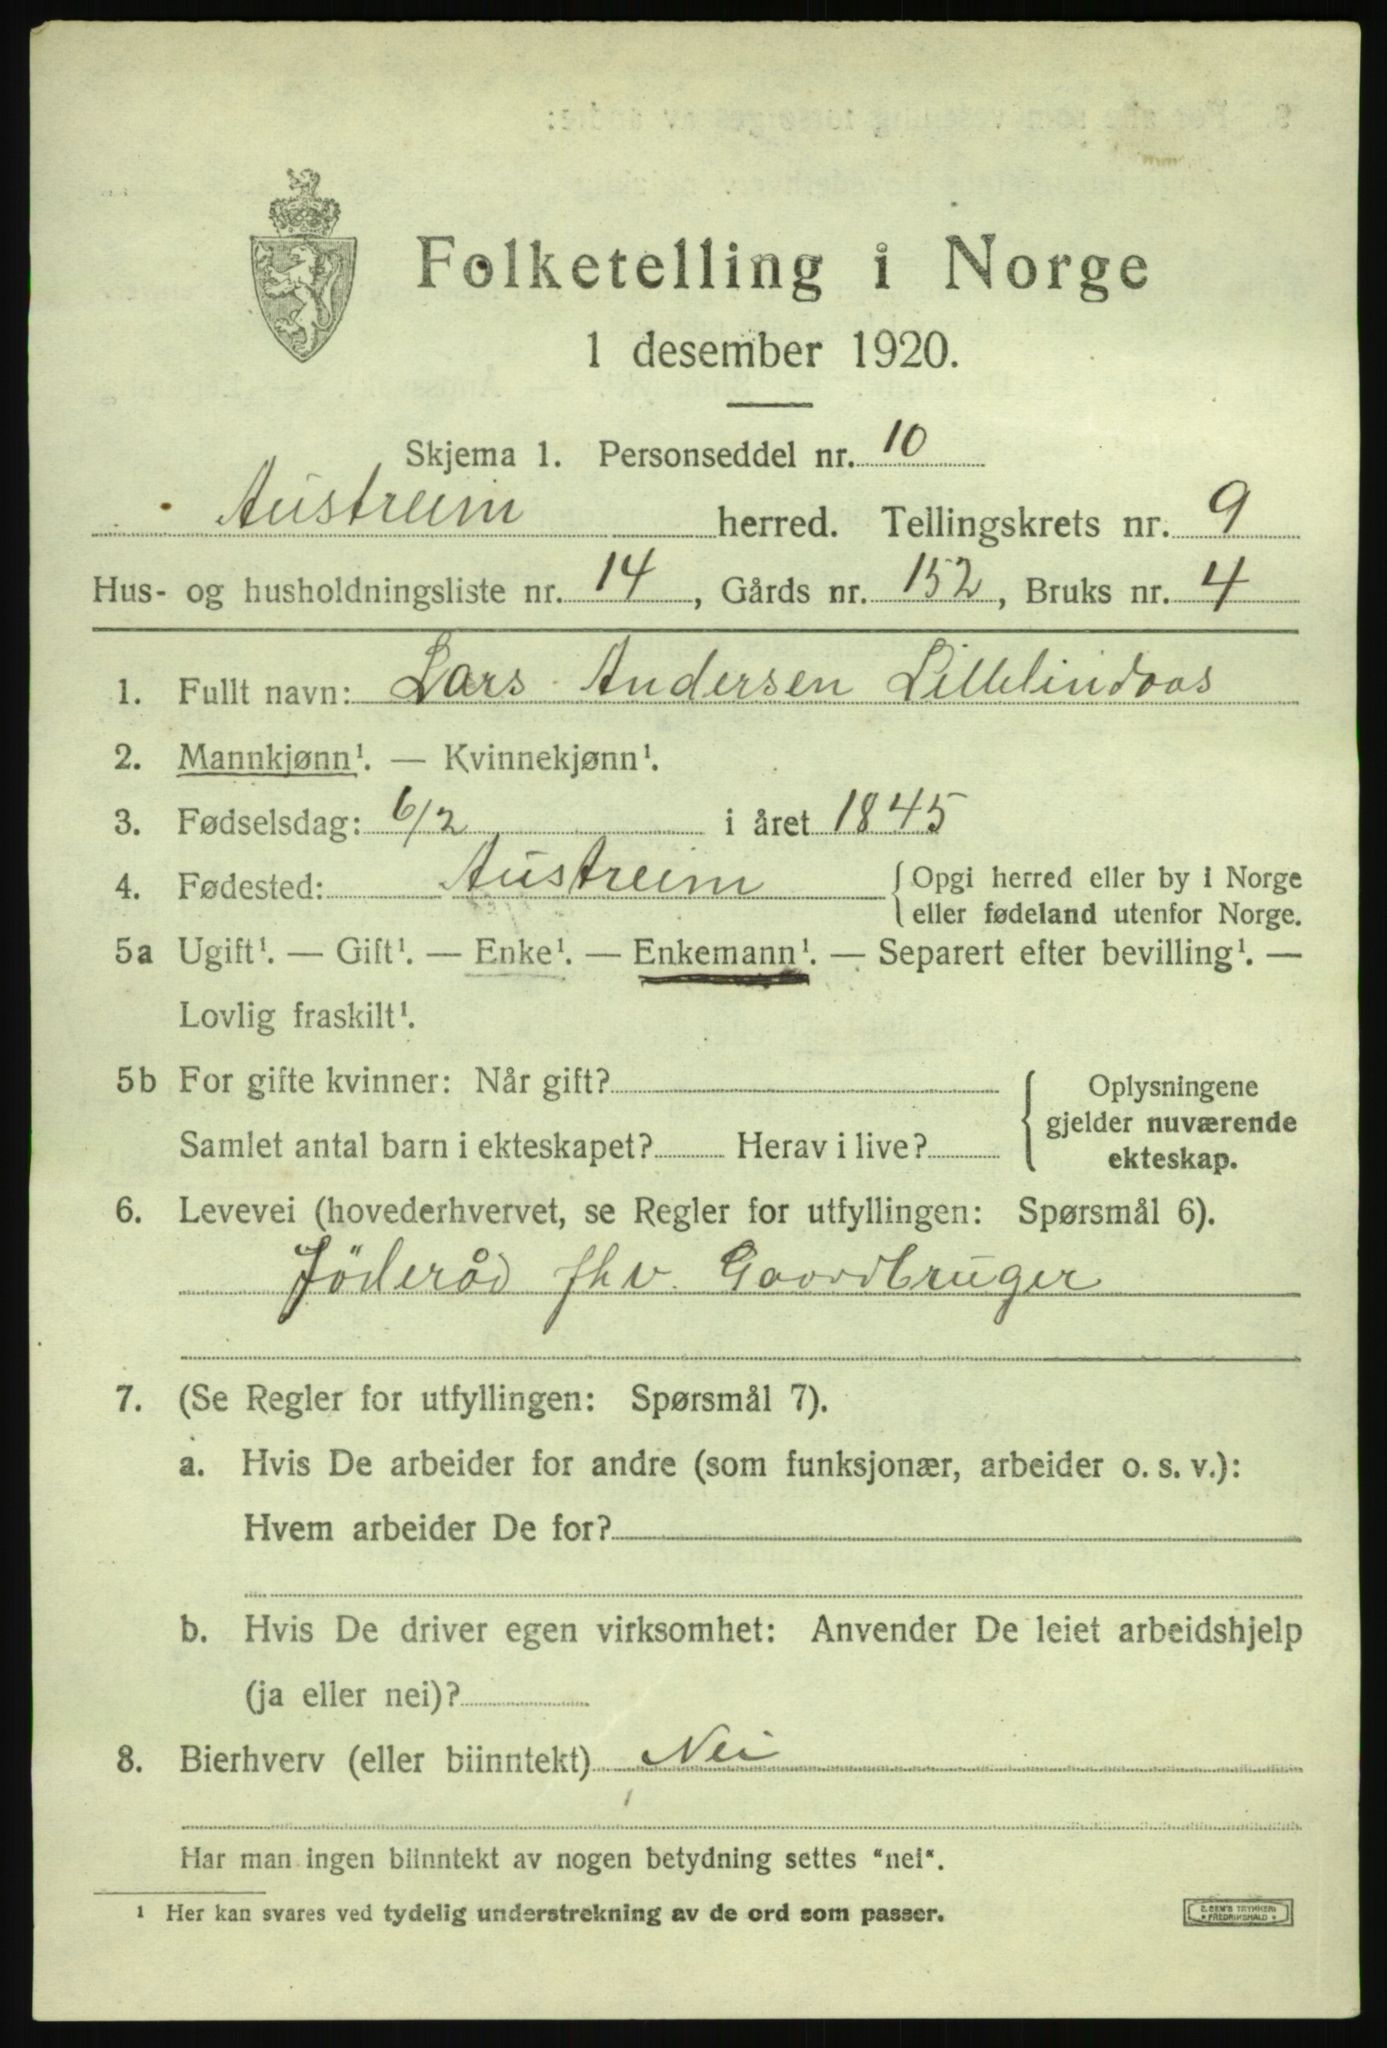 Folketelling i Norge
1 desember 1920.
Skjema 1. Personseddel nr. 10
Austreim herred. Tellingskrets nr. 9
Hus- og husholdningsliste nr. 14, Gårds nr. 152, Bruks nr. 4
1. Fullt navn: Lars Andersen Lillelindaas
2. Mannkjønn¹. — Kvinnekjønn¹.
3. Fødselsdag: 6/2 i året 1845
4. Fødested: Austreim { Opgi herred eller by i Norge
eller fødeland utenfor Norge.
5a Ugift¹. — Gift¹. — Enke¹. — Enkemann¹. — Separert efter bevilling¹. —
Lovlig fraskilt¹.
5b For gifte kvinner: Når gift? { Oplysningene
gjelder nuværende
Samlet antal barn i ekteskapet? Herav i live? ekteskap.
6. Levevei (hovederhvervet, se Regler for utfyllingen: Spørsmål 6).
Föderåd fhv. Gaardbruger
7. (Se Regler for utfyllingen: Spørsmål 7).
a. Hvis De arbeider for andre (som funksjonær, arbeider o. s. v.):
Hvem arbeider De for?
b. Hvis De driver egen virksomhet: Anvender De leiet arbeidshjelp
(ja eller nei)?
8. Bierhverv (eller biinntekt) Nei
Har man ingen biinntekt av nogen betydning settes "nei".
¹ Her kan svares ved tydelig understrekning av de ord som passer.
TRYKKERI
FREDRIKSHALD